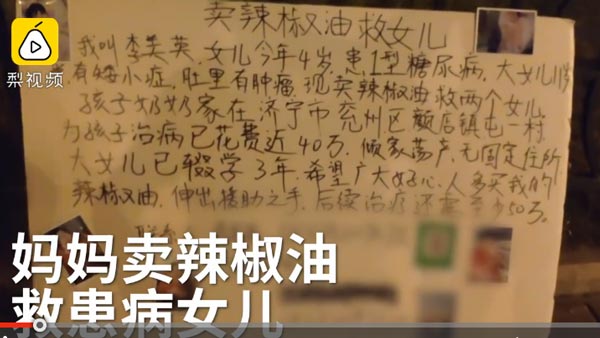 卖辣椒油救女儿
我叫李美英,女儿今年4岁,患1型糖尿病,大女儿11岁
患有矮小症,肚里有肿瘤,现卖辣椒油救两个女儿
孩子奶奶家在济宁市兖州区颜店镇屯一村
为孩子治病已花费近40万,倾家荡产,无固定住所
大女儿已辍学3年,希望广大好心人多买我的
辣椒油,伸出援助之手,后续治疗还需至少50万。
梨视频
妈妈卖辣椒油
救患病女儿